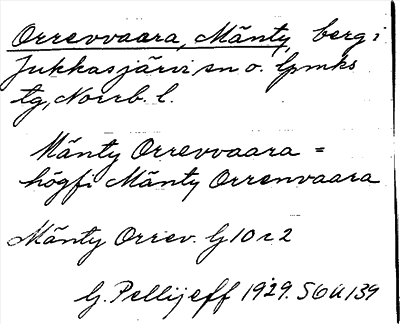 Orrevvaara, Mänty, berg i
Jukkasjärvi sn o. lpmks
tg, Norrb. l.
Mänty Orrevvaara =
högfi Mänty Orrenvaara
Mänty Orrev. G10 c2
G. Pellijeff 1929. SOU 139